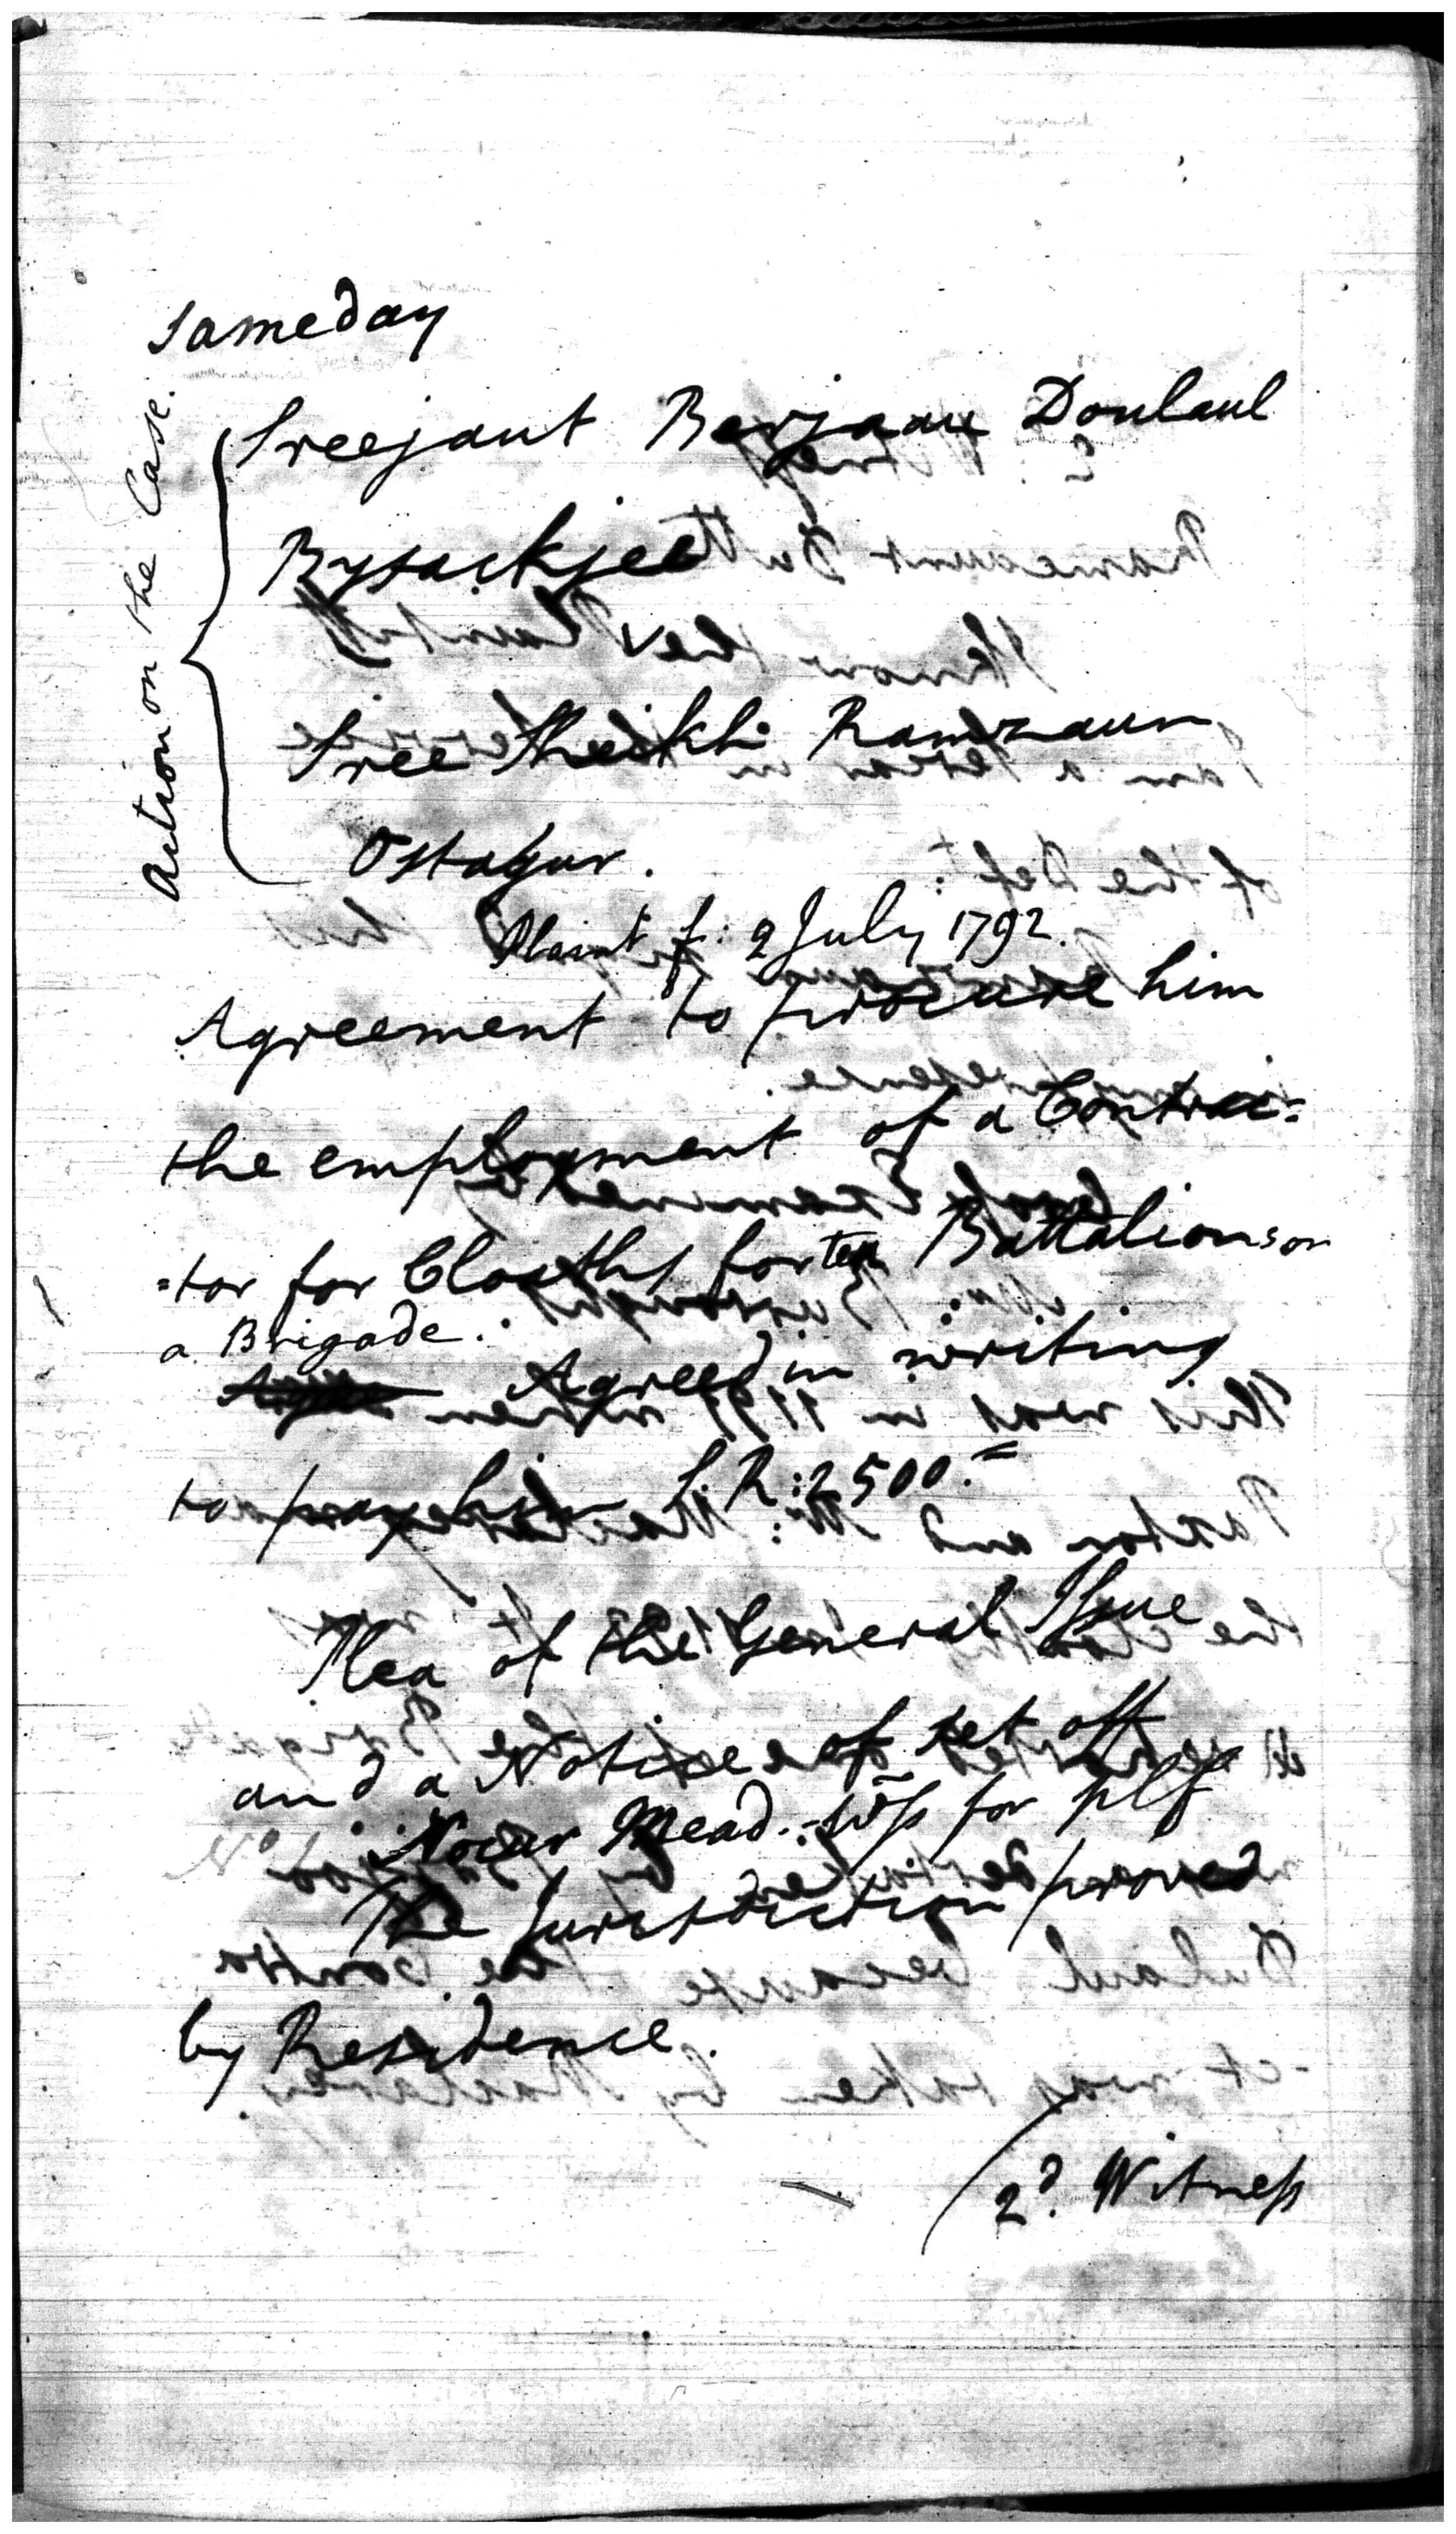 Same day
Action on the Case.
Sreejaut Berjaau Doulaul
Bysackjee
v
Sree Sheikh Ramzaun
Ostagur.
Plaint f: 2 July 1792.
Agreement to procure him
the employment of a Contrac=
=tor for Cloaths for ten Battalions or
a Brigade.
Agreed in writing
to pay him S.R: 2500.=
Plea of the General Issue
and a Notice of set off
Mead. for plf
The Jurisdiction proved
by Residence.
2d. Witness